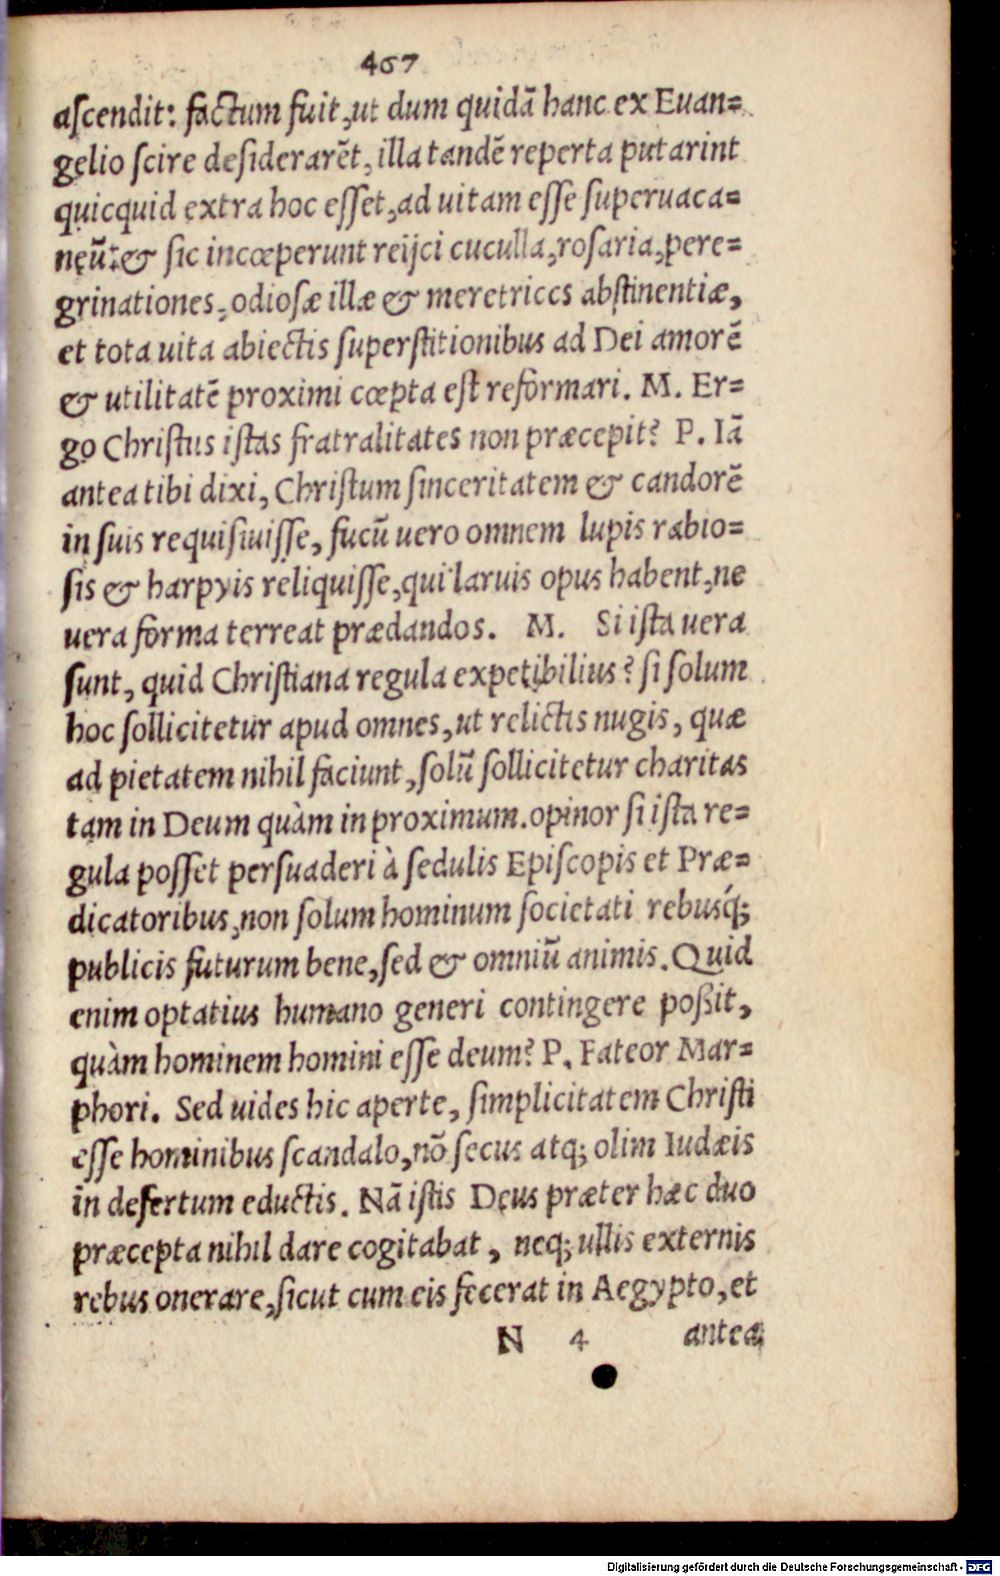 467
ascendit: factum fuit, ut dum quidã hanc ex Euan=
gelio scire desiderarẽt, illa tandẽ reperta putarint
quicquid extra hoc esset, ad uitam esse superuaca=
neũ: & sic incœperunt reijci cuculla, rosaria, pere=
grinationes, odiosæ illæ & meretrices abstinentiæ,
et tota uita abiectis superstitionibus ad Dei amorẽ
& utilitatẽ proximi cœpta est reformari. M. Er=
go Christus istas fratralitates non præcepit? P. Iã
antea tibi dixi, Christum sinceritatem & candorẽ
in suis requisiuisse, fucũ uero omnem lupis rabio=
sis & harpyis reliquisse, qui laruis opus habent, ne
uera forma terreat prædandos. M. Si ista uera
sunt, quid Christiana regula expetibilius? si solum
hoc sollicitetur apud omnes, ut relictis nugis, quæ
ad pietatem nihil faciunt, solũ sollicitetur charitas
tam in Deum quàm in proximum. opinor si ista re=
gula posset persuaderi à sedulis Episcopis et Præ=
dicatoribus, non solum hominum societati rebusq́;
publicis futurum bene, sed & omniũ animis. Quid
enim optatius humano generi contingere poßit,
quàm hominem homini esse deum? P. Fateor Mar=
phori. Sed uides hic aperte, simplicitatem Christi
esse hominibus scandalo, nõ secus atq; olim Iudæis
in desertum eductis. Nã istis Deus præter hæc duo
præcepta nihil dare cogitabat, neq; ullis externis
rebus onerare, sicut cum eis fecerat in Aegypto, et
N 4 antea
Digitalisierung gefördert durch die Deutsche Forschungsgemeinschaft - DFG